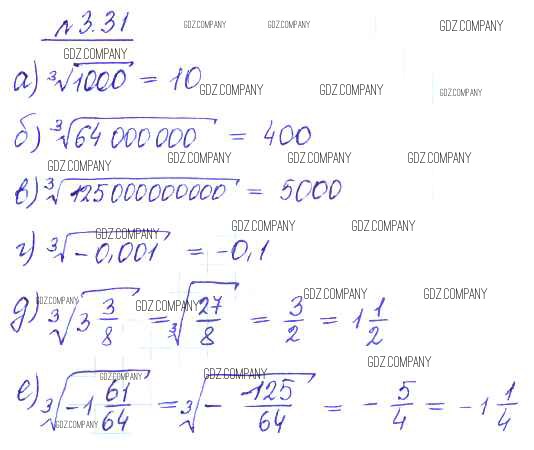 № 3.31
GDZ.COMPANY GDZ.COMPANY GDZ.COMPANY
GDZ.COMPANY
а) ∛1000 = 10
GDZ.COMPANY GDZ.COMPANY GDZ.COMPANY
б) ∛64 000 000 = 400
GDZ.COMPANY GDZ.COMPANY GDZ.COMPANY GDZ.COMPANY
в) ∛125000000000 = 5000
GDZ.COMPANY GDZ.COMPANY GDZ.COMPANY
г) ∛-0,001 = -0,1
GDZ.COMPANY GDZ.COMPANY GDZ.COMPANY GDZ.COMPANY
д) ∛3 3/8 = ∛27/8 = 3/2 = 1 1/2
GDZ.COMPANY GDZ.COMPANY GDZ.COMPANY
е) ∛-1 61/64 = ∛- 125/64 = - 5/4 = -1 1/4
GDZ.COMPANY